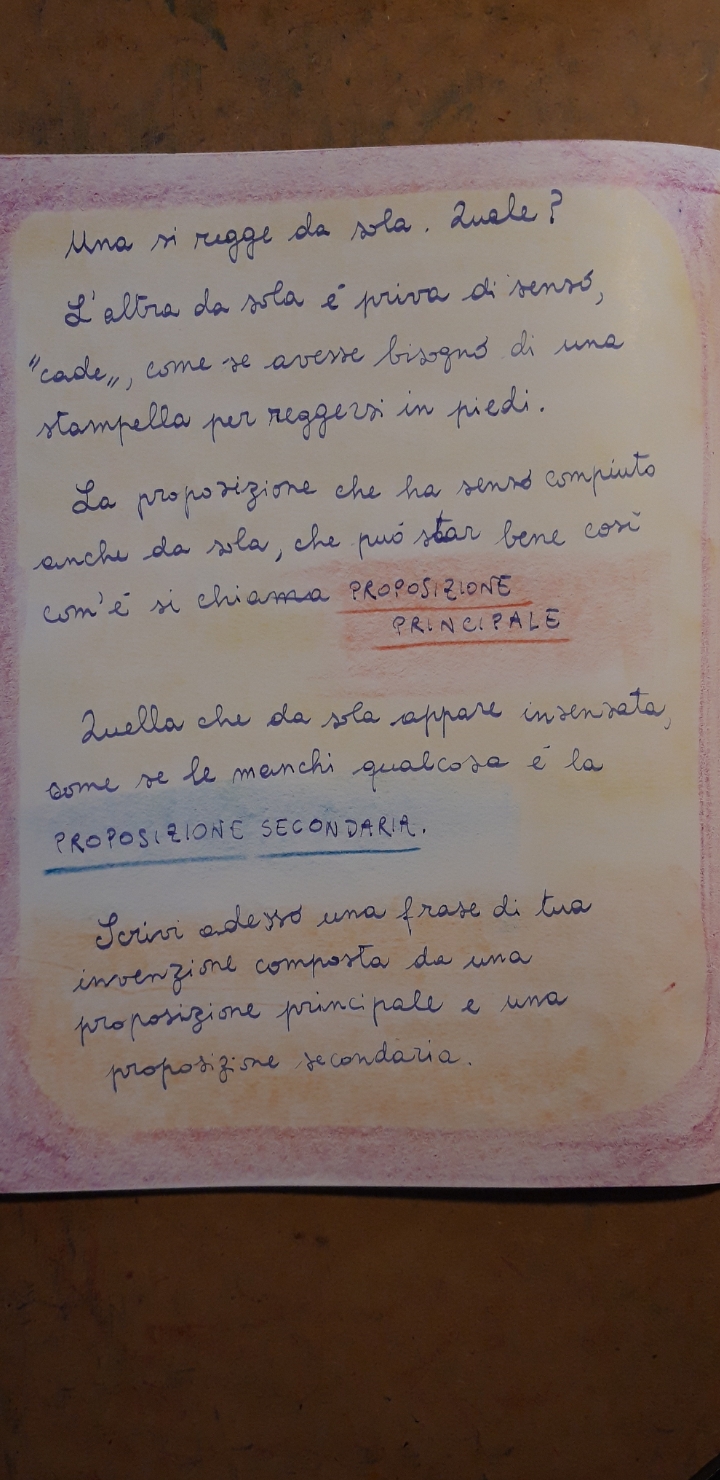 Una si regge da sola. Quale?
L'altra da sola è priva di senso,
"cade", come se avesse bisogno di una
stampella per reggersi in piedi.
La proposizione che ha senso compiuto
anche da sola, che può star bene così
com'è si chiama PROPOSIZIONE
PRINCIPALE
Quella che da sola appare insensata,
come se le manchi qualcosa è la
PROPOSIZIONE SECONDARIA.
Scrivi adesso una frase di tua
invenzione composta da una
proposizione principale e una
proposizione secondaria.